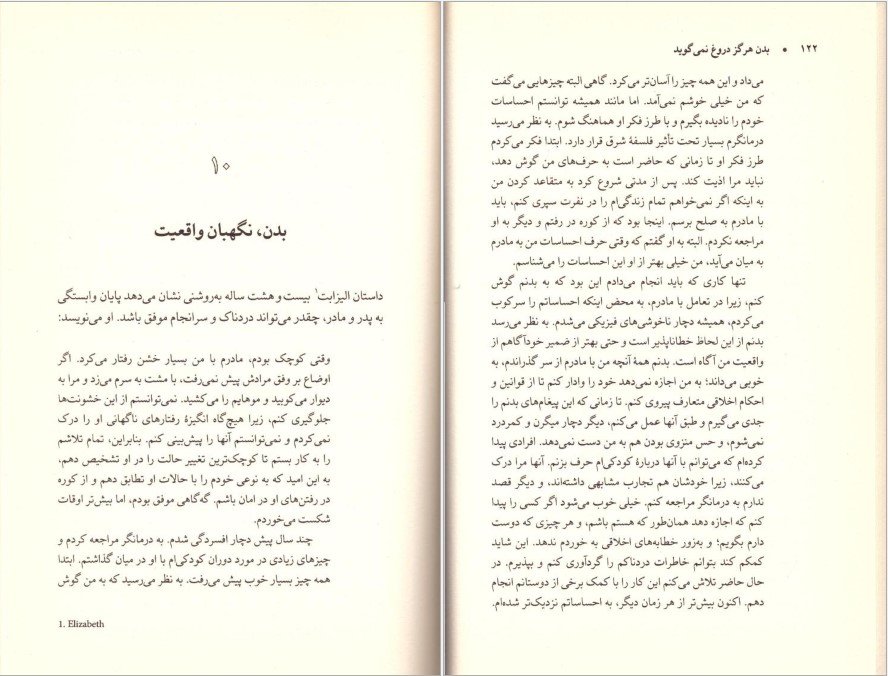 ۱۰
بدن، نگهبان واقعیت
داستان الیزابت۱ بیست و هشت ساله به‌روشنی نشان می‌دهد پایان وابستگی
به پدر و مادر، چقدر می‌تواند دردناک و سرانجام موفق باشد. او می‌نویسد:
وقتی کوچک بودم، مادرم با من بسیار خشن رفتار می‌کرد. اگر
اوضاع بر وفق مرادش پیش نمی‌رفت، با مشت به سرم می‌زد و مرا به
دیوار می‌کوبید و موهایم را می‌کشید. نمی‌توانستم از این خشونت‌ها
جلوگیری کنم، زیرا هیچ‌گاه انگیزهٔ رفتارهای ناگهانی او را درک
نمی‌کردم و نمی‌توانستم آنها را پیش‌بینی کنم. بنابراین، تمام تلاشم
را به کار بستم تا کوچک‌ترین تغییر حالت را در او تشخیص دهم،
به این امید که به نوعی خودم را با حالات او تطابق دهم و از کوره
در رفتن‌های او در امان باشم. گه‌گاهی موفق بودم، اما بیش‌تر اوقات
شکست می‌خوردم.
چند سال پیش دچار افسردگی شدم. به درمانگر مراجعه کردم و
چیزهای زیادی در مورد دوران کودکی‌ام با او در میان گذاشتم. ابتدا
همه چیز بسیار خوب پیش می‌رفت. به نظر می‌رسید که به من گوش
1. Elizabeth
۱۲۲ • بدن هرگز دروغ نمی‌گوید
می‌داد و این همه چیز را آسان‌تر می‌کرد. گاهی البته چیزهایی می‌گفت
که من خیلی خوشم نمی‌آمد. اما مانند همیشه توانستم احساسات
خودم را نادیده بگیرم و با طرز فکر او هماهنگ شوم. به نظر می‌رسید
درمانگرم بسیار تحت تأثیر فلسفهٔ شرق قرار دارد. ابتدا فکر می‌کردم
طرز فکر او تا زمانی که حاضر است به حرف‌های من گوش دهد،
نباید مرا اذیت کند. پس از مدتی شروع کرد به متقاعد کردن من
به اینکه اگر نمی‌خواهم تمام زندگی‌ام را در نفرت سپری کنم، باید
با مادرم به صلح برسم. اینجا بود که از کوره در رفتم و دیگر به او
مراجعه نکردم. البته به او گفتم که وقتی حرف احساسات من به مادرم
به میان می‌آید، من خیلی بهتر از او این احساسات را می‌شناسم.
تنها کاری که باید انجام می‌دادم این بود که به بدنم گوش
کنم، زیرا در تعامل با مادرم، به محض اینکه احساساتم را سرکوب
می‌کردم، همیشه دچار ناخوشی‌های فیزیکی می‌شدم. به نظر می‌رسد
بدنم از این لحاظ خطاناپذیر است و حتی بهتر از ضمیر خودآگاهم از
واقعیت من آگاه است. بدنم همهٔ آنچه من با مادرم از سر گذراندم، به
خوبی می‌داند؛ به من اجازه نمی‌دهد خود را وادار کنم تا از قوانین و
احکام اخلاقی متعارف پیروی کنم. تا زمانی که این پیغام‌های بدنم را
جدی می‌گیرم و طبق آنها عمل می‌کنم، دیگر دچار میگرن و کمردرد
نمی‌شوم، و حس منزوی بودن هم به من دست نمی‌دهد. افرادی پیدا
کرده‌ام که می‌توانم با آنها دربارهٔ کودکی‌ام حرف بزنم. آنها مرا درک
می‌کنند، زیرا خودشان هم تجارب مشابهی داشته‌اند، و دیگر قصد
ندارم به درمانگر مراجعه کنم. خیلی خوب می‌شود اگر کسی را پیدا
کنم که اجازه دهد همان‌طور که هستم باشم، و هر چیزی که دوست
دارم بگویم؛ و به‌زور خطابه‌های اخلاقی به خوردم ندهد. این شاید
کمکم کند بتوانم خاطرات دردناکم را گردآوری کنم و بپذیرم. در
حال حاضر تلاش می‌کنم این کار را با کمک برخی از دوستانم انجام
دهم. اکنون بیش‌تر از هر زمان دیگر، به احساساتم نزدیک‌تر شده‌ام.